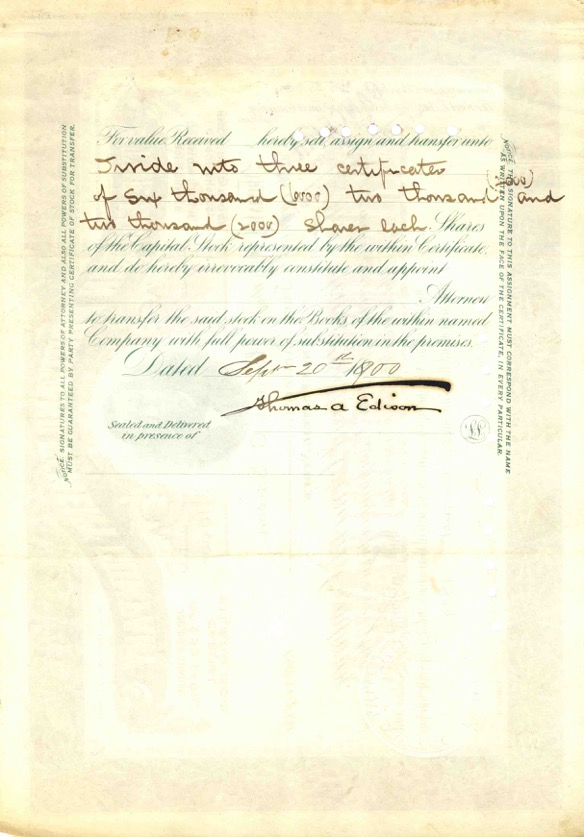 For value Received hereby sell, assign and transfer unto
Divide into three certificates
of six thousand (6000) two thousand (2000) and
two thousand (2000) shares each Shares
of the Capital Stock represented by the within Certificate,
and do hereby irrevocably constitute and appoint
Attorney
to transfer the said stock on the Books of the within named
Company with full power of substitution in the premises.
Dated Sept 20th 1900
Thomas A Edison
Sealed and Delivered
in presence of
L.S.
NOTICE. SIGNATURES TO ALL POWERS OF ATTORNEY AND ALSO ALL POWERS OF SUBSTITUTION
MUST BE GUARANTEED BY PARTY PRESENTING CERTIFICATE OF STOCK FOR TRANSFER.
NOTICE. THE SIGNATURE TO THIS ASSIGNMENT MUST CORRESPOND WITH THE NAME
AS WRITTEN UPON THE FACE OF THE CERTIFICATE, IN EVERY PARTICULAR.